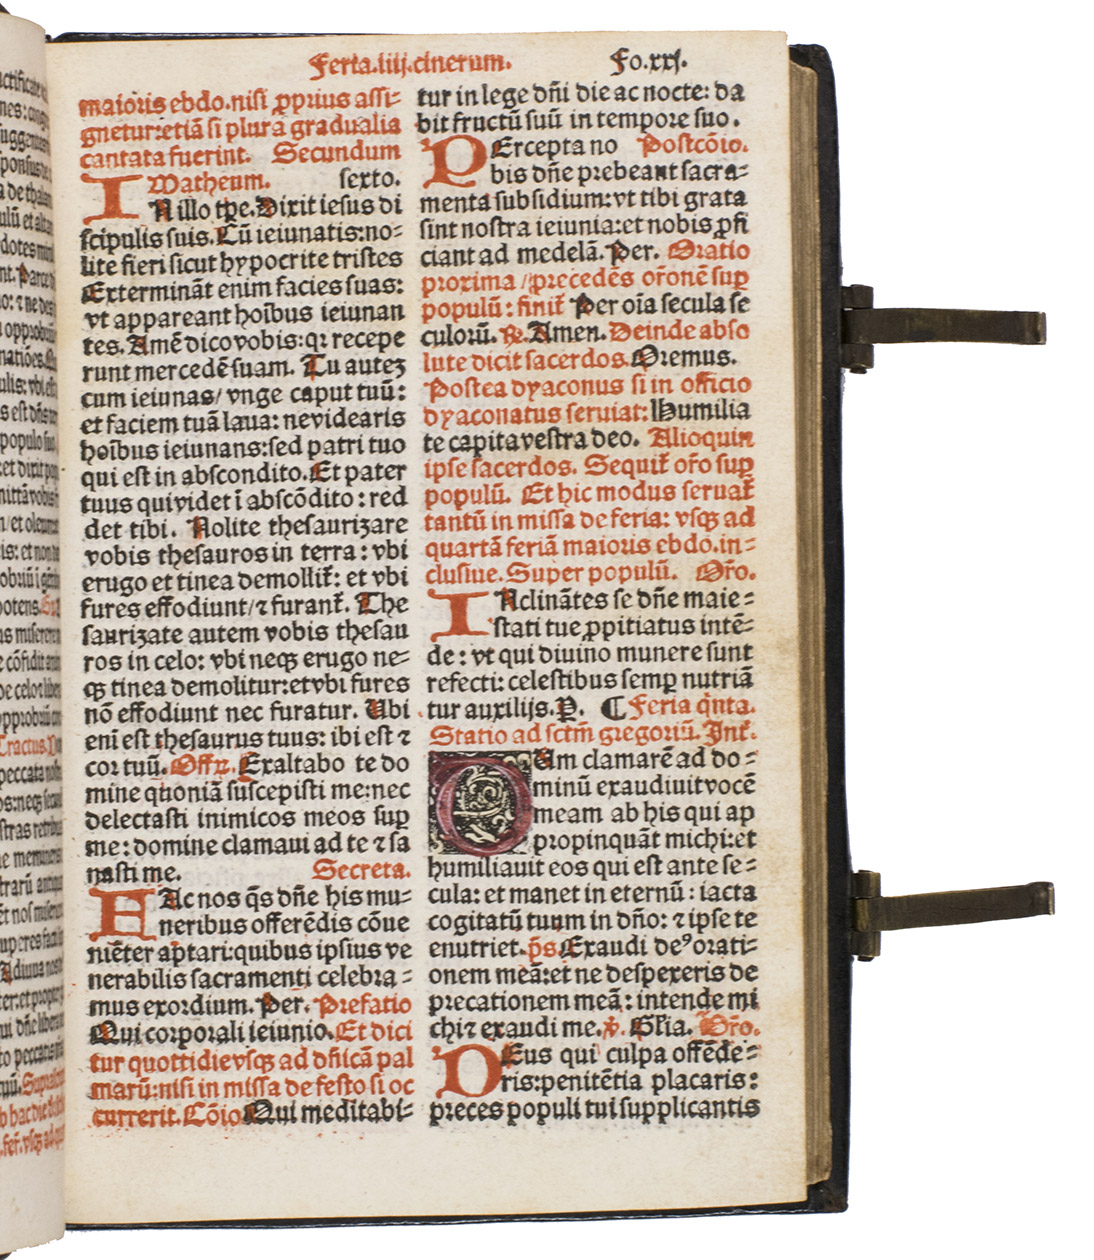 Feria.iiij.cinerum. Fo.xxj.
maioris ebdo.nisi ꝓprius assi-
gnetur:etiã si plura gradualia
cantata fuerint. Secundum
Matheum. sexto.
IN illo tꝑe.Dixit iesus di
scipulis suis.Cũ ieiunatis:no-
lite fieri sicut hypocrite tristes
Exterminãt enim facies suas:
vt appareant hoĩbus ieiunan
tes.Amẽ dico vobis:qꝛ recepe
runt mercedẽ suam. Tu auteꝫ
cum ieiunas/vnge caput tuũ:
et faciem tuã laua: ne videaris
hoĩbus ieiunans:sed patri tuo
qui est in abscondito.Et pater
tuus qui videt ĩ abscõdito:red
det tibi. Nolite thesaurizare
vobis thesauros in terra: vbi
erugo et tinea demollit᷑: et vbi
fures effodiunt/⁊ furant᷑. The
saurizate autem vobis thesau
ros in celo: vbi neqꝫ erugo ne-
qꝫ tinea demolitur:et vbi fures
nõ effodiunt nec furatur. Ubi
enĩ est thesaurus tuus: ibi est ⁊
cor tuũ. Offꝝ. Exaltabo te do
mine quoniã suscepisti me:nec
delectasti inimicos meos suꝑ
me: domine clamaui ad te ⁊ sa
nasti me. Secreta.
HAc nos q̃s dñe his mu-
neribus offerẽdis cõue
niẽter aptari:quibus ipsius ve
nerabilis sacramenti celebra-
mus exordium. Per. Prefatio
Qui corporali ieiunio. Et dici
tur quottidie vsqꝫ ad dñicã pal
marũ:nisi in missa de festo si oc
currerit. Cõio. Qui meditabi-
tur in lege dñi die ac nocte: da
bit fructũ suũ in tempore suo.
PErcepta no Postcõio.
bis dñe prebeant sacra-
menta subsidium:vt tibi grata
sint nostra ieiunia:et nobis ꝓfi
ciant ad medelã. Per. Oratio
proxima/precedẽs or̃onẽ suꝑ
populũ: finit᷑ Per oĩa secula se
culorũ. ℟. Amen. Deinde abso
lute dicit sacerdos. Oremus.
Postea dyaconus si in officio
dyaconatus seruiat: Humilia
te capita vestra deo. Alioquin
ipse sacerdos. Sequit᷑ or̃o suꝑ
populũ. Et hic modus seruat᷑
tantũ in missa de feria: vsqꝫ ad
quartã feriã maioris ebdo.in-
clusiue. Super populũ. Or̃o.
INclinãtes se dñe maie-
stati tue ꝓpitiatus intẽ-
de: vt qui diuino munere sunt
refecti: celestibus semꝑ nutriã
tur auxilijs.P. ¶ Feria q̃nta.
Statio ad sctm̃ gregoriũ. Int᷑.
CUm clamarẽ ad do-
minũ exaudiuit vocẽ
meam ab his qui ap
propinquãt michi:et
humiliauit eos qui est ante se-
cula: et manet in eternũ: iacta
cogitatũ tuum in dño: ⁊ ipse te
enutriet. p̃s. Exaudi deꝰ orati-
onem meã:et ne despexeris de
precationem meã: intende mi
chi ⁊ exaudi me. ℣. Gl̃ia. Or̃o.
DEus qui culpa offẽde-
ris:penitẽtia placaris:
preces populi tui supplicantis